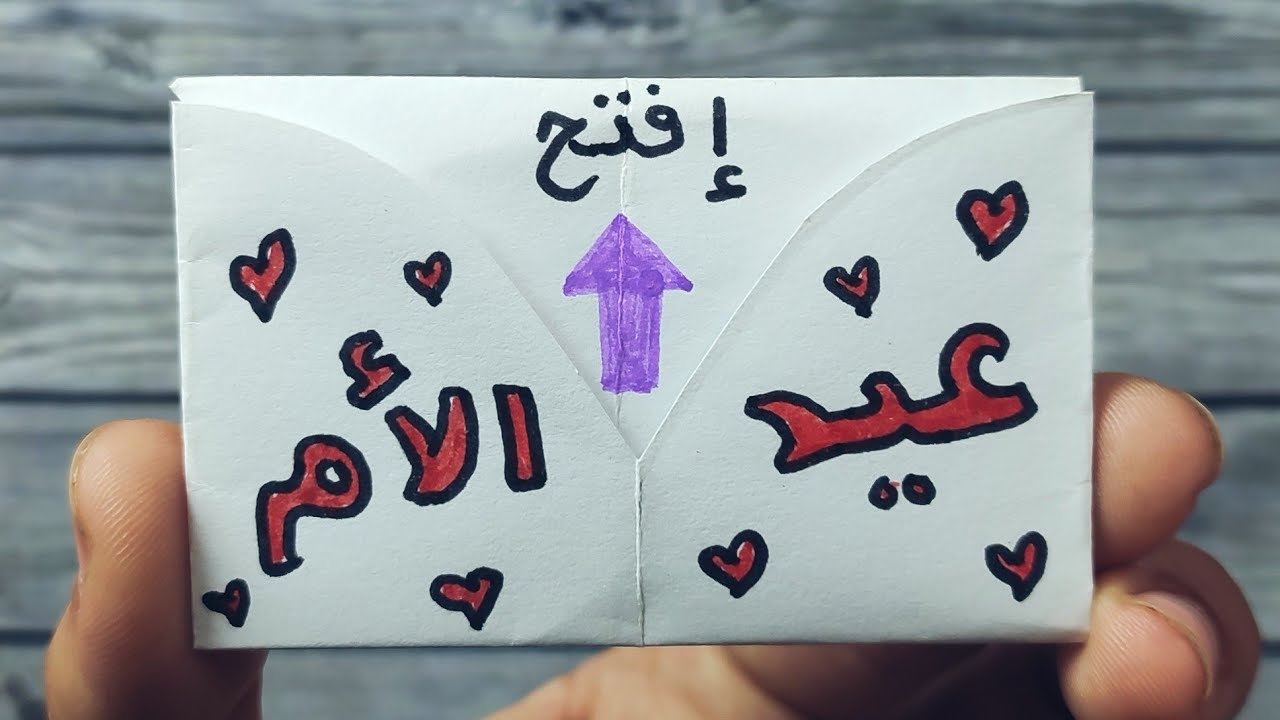 إفتح
عيد الأم